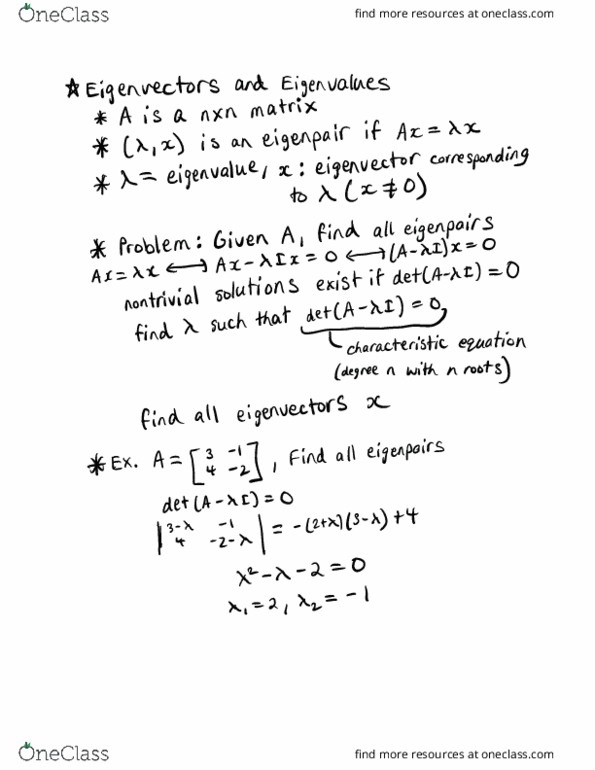 OneClass
find more resources at oneclass.com
☆ Eigenvectors and Eigenvalues
* A is a nxn matrix
* (λ,x) is an eigenpair if Ax = λx
* λ = eigenvalue, x : eigenvector corresponding
to λ (x ≠ 0)
* Problem: Given A, find all eigenpairs
Ax = λx ⟷ Ax - λIx = 0 ⟷ (A-λI)x = 0
nontrivial solutions exist if det(A-λI) = 0
find λ such that det(A-λI) = 0,
characteristic equation
(degree n with n roots)
find all eigenvectors x
* Ex. A = [3 -1
4 -2], Find all eigenpairs
det(A-λI) = 0
|3-λ -1
4 -2-λ| = -(2+λ)(3-λ)+4
λ² - λ - 2 = 0
λ₁ = 2, λ₂ = -1
OneClass
find more resources at oneclass.com